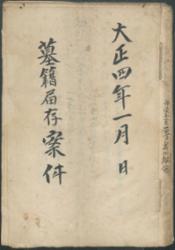 大正四年一月 日
墓籍届存案件